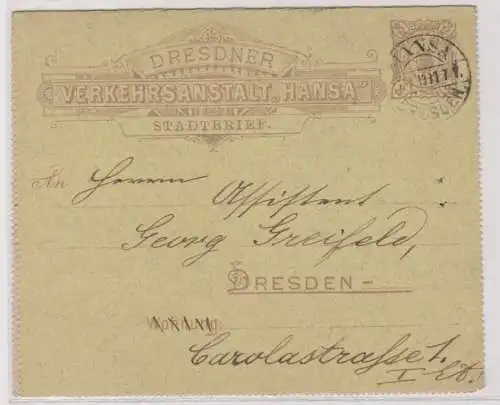 DRESDNER
VERKEHRSANSTALT „HANSA"
STADTBRIEF.
HANSA
DRESDEN
An Herrn Assistent
Georg Greifeld,
DRESDEN-
Carolastrasse 1.
I Et.